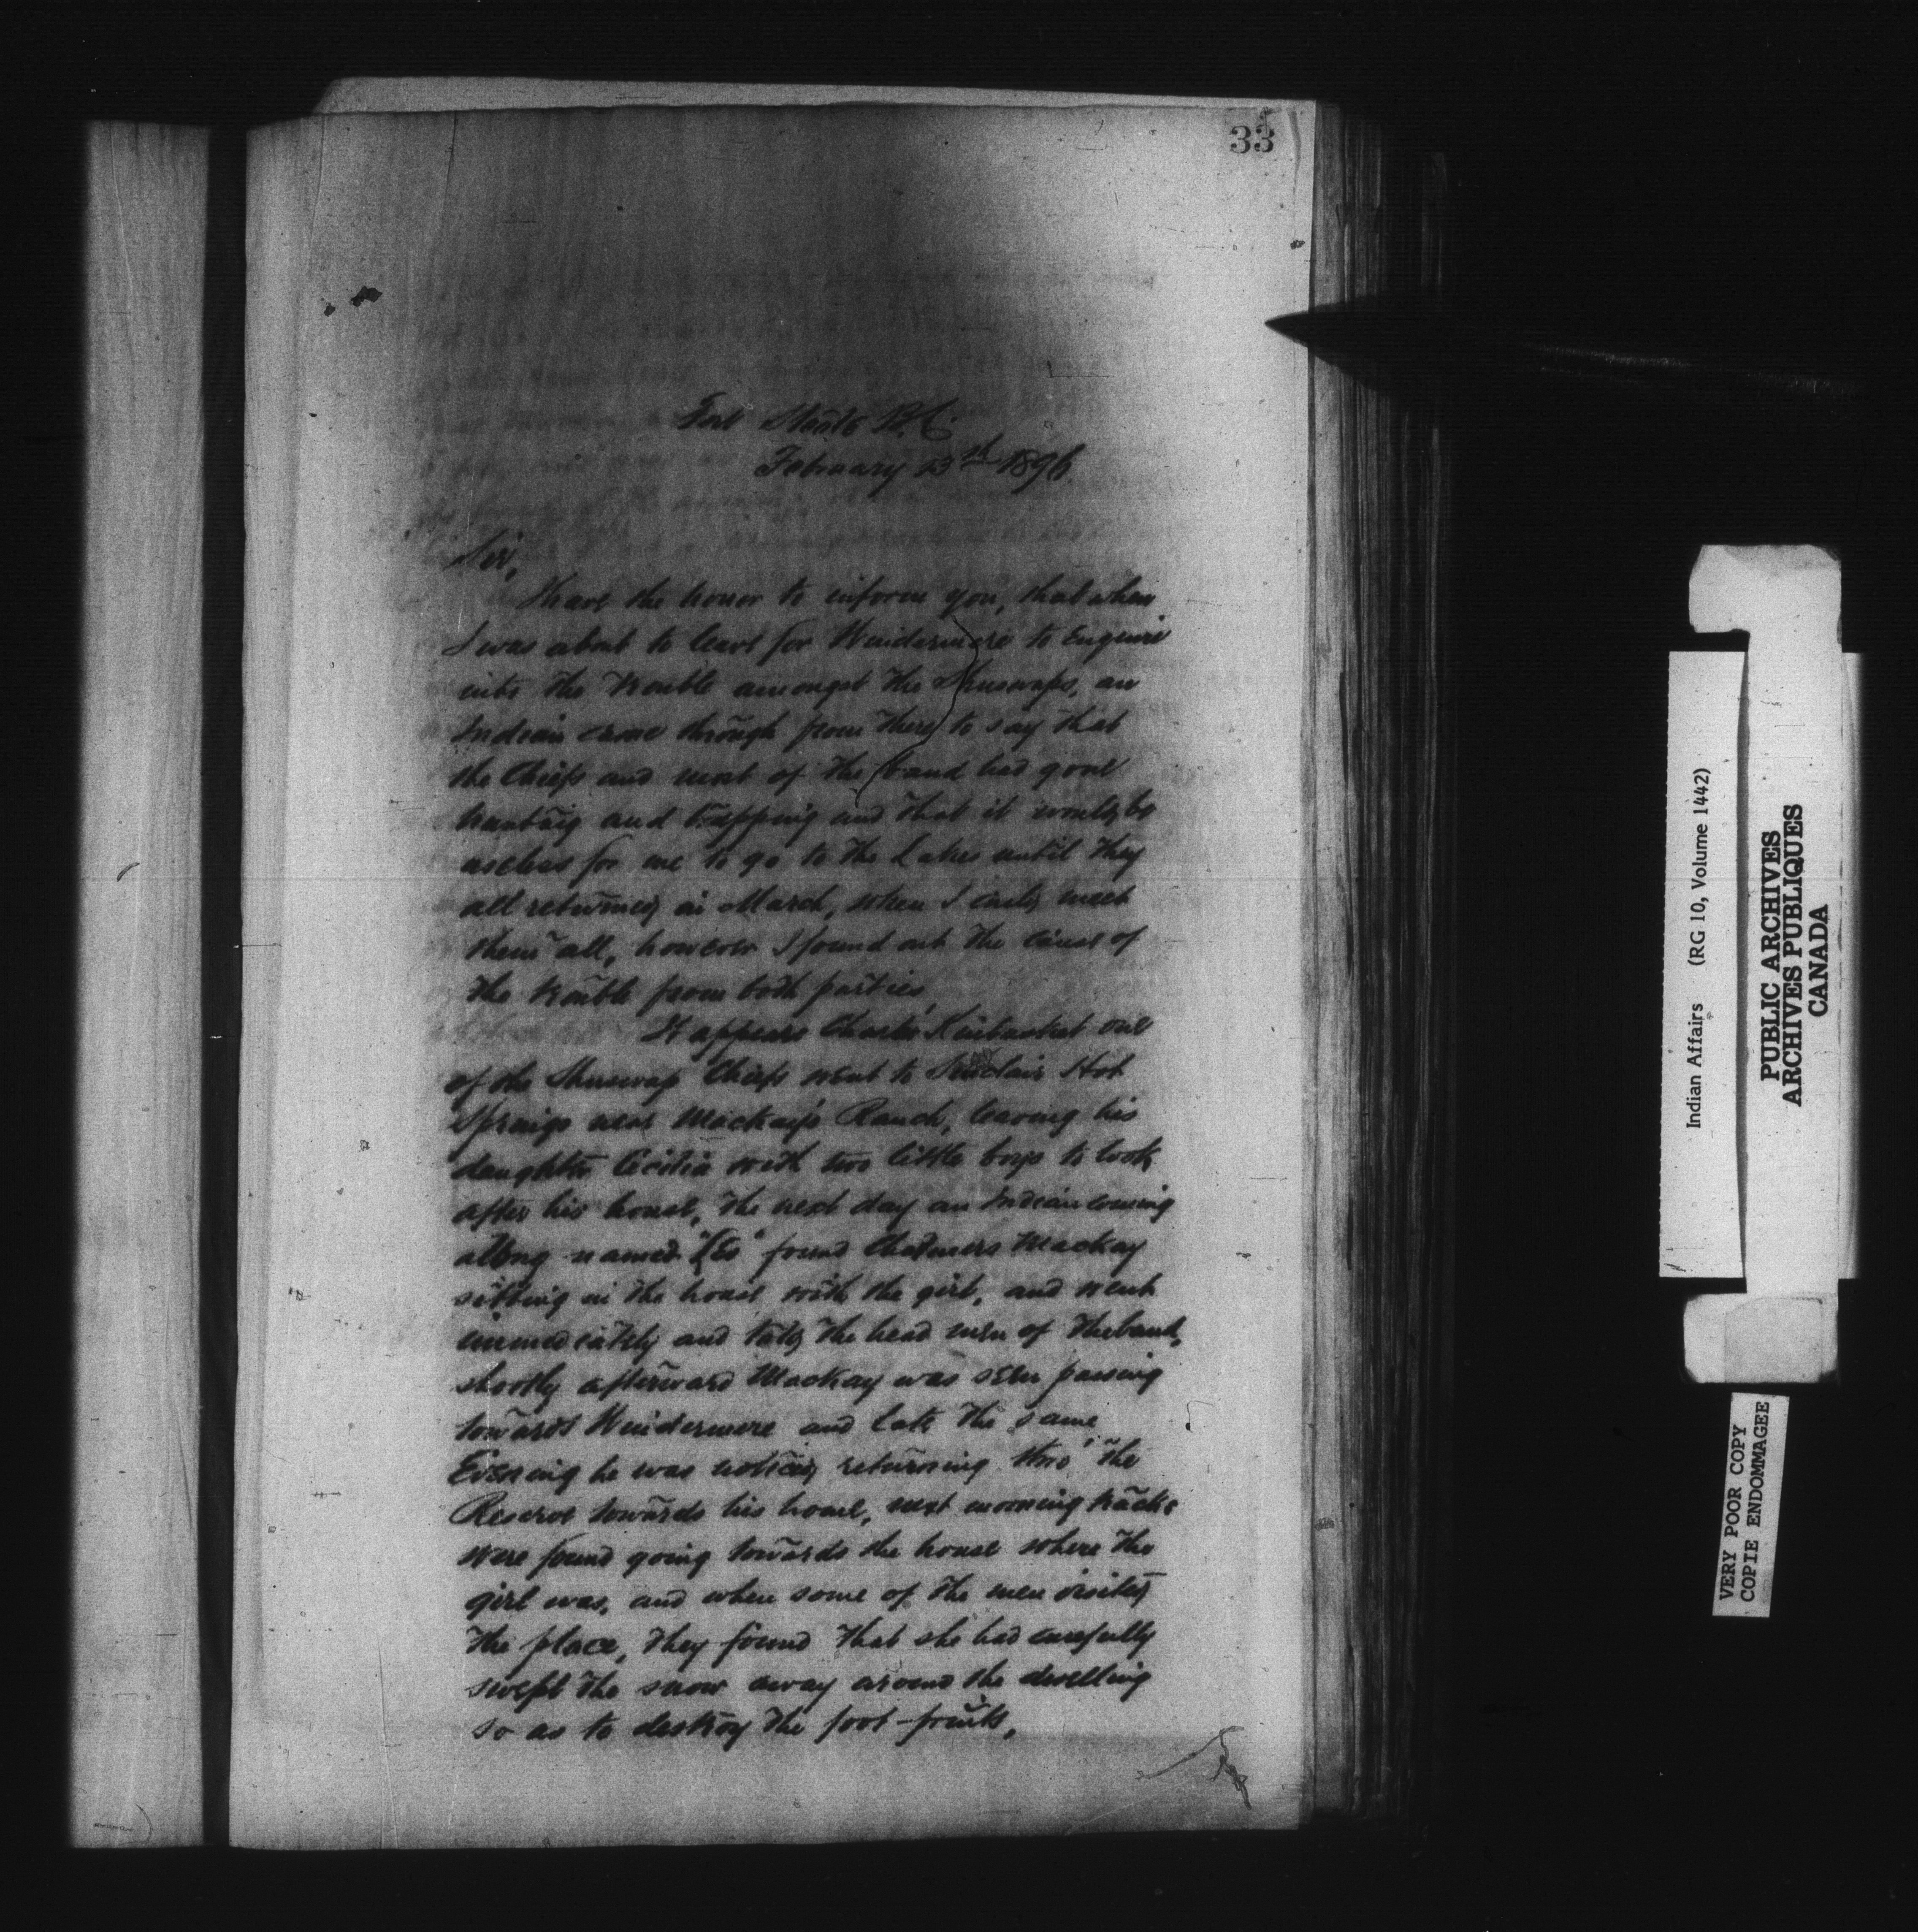 33
Fort Steele B.C.
February 13th 1896
Sir,
I have the honor to inform you, that when
I was about to leave for Windermere to Enquire
into the trouble amongst the Shuswaps, an
Indian came through from there to say that
the Chiefs and most of the band had gone
hunting and trapping and that it would be
useless for me to go to the Lakes until they
all returned in March, when I could meet
them all, however I found out the cause of
the trouble from both parties,
It appears Charles Kinbasket one
of the Shuswap Chiefs went to Sinclair Hot
Springs near Mackay's Ranch, leaving his
daughter Cecilia with two little boys to look
after his house, the next day an Indian coming
along named found Chalmers Mackay
sitting in the house with the girl, and went
immediately and told the head men of the band,
shortly afterward Mackay was seen passing
towards Windermere and late the same
Evening he was noticed returning thro' the
Reserve towards his home, next morning tracks
were found going towards the house where the
girl was, and when some of the men visited
the place, they found that she had carefully
swept the snow away around the dwelling
so as to destroy the foot-prints,
Indian Affairs (RG 10, Volume 1442)
PUBLIC ARCHIVES
ARCHIVES PUBLIQUES
CANADA
VERY POOR COPY
COPIE ENDOMMAGEE